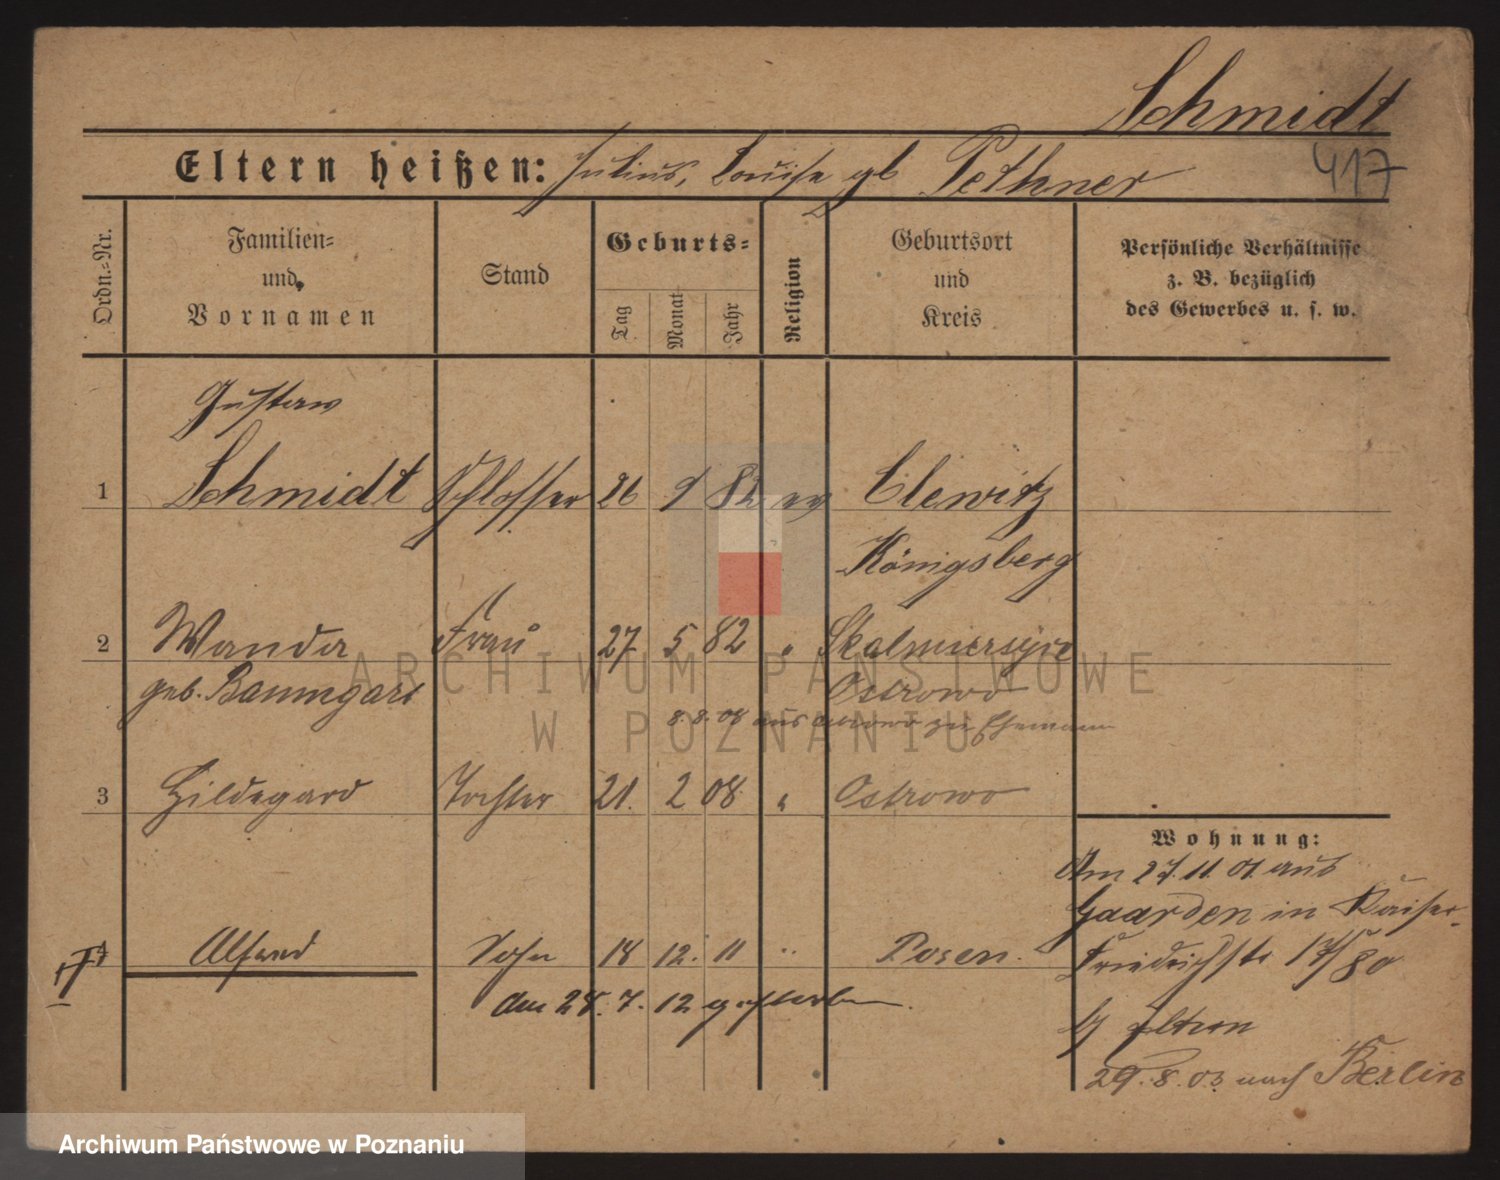 Schmidt
417
Eltern heißen: Julius, Louise gb Pethner
Ordn.=Nr.
Familien=
und
Vornamen
Stand
Geburts=
Tag
Monat
Jahr
Religion
Geburtsort
und
Kreis
Persönliche Verhältnisse
z. B. bezüglich
des Gewerbes u. s. w.
Gustaw
1 Schmidt Schlosser 26 9 82 ev Clewitz
Königsberg
2 Wanda Frau 27 5 82 " Skalmierzyce
geb. Baumgart Ostrowo
8.8.08 aus Ostrowo zu Ehemann
3 Hildegard Tochter 21. 2 08 " Ostrowo
Wohnung:
Am 27.11.01 aus
Gaarden in Kaiser-
4 Alfred Sohn 18 12. 11 " Posen.
Friedrichstr 17/80
den 28. 7. 12 gestorben.
b/ Eltern
29.8.03 nach Berlin
ARCHIWUM PAŃSTWOWE
W POZNANIU
Archiwum Państwowe w Poznaniu